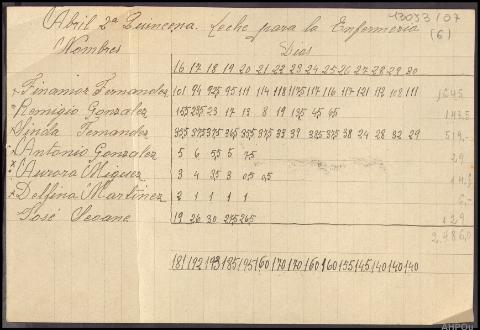 13033/07
Abril 2ª Quincena. Leche para la Enfermeria (6)
Nombres Dias
16 17 18 19 20 21 22 23 24 25 26 27 28 29 30
Finamor Fernandez 101 94 92,5 95 111 114 118 117,5 117 116 117 121 112 108 111
Remigio Gonzalez 23 17 13 8 19 13,5 4,5 4,5 143,5
Linda Fernandez 37,5 37,5 36,5 35,5 37,5 33 39 32,5 37,5 38 24 28 32 29 519,-
Antonio Gonzalez 5 6 5,5 5 7,5 29
Aurora Miguez 3 4 3,5 3 0,5 0,5
Delfina Martinez 2 1 1 1 1 6,-
José Seoane 19 26 30 27,5 26,5 129
2.486,0
181 192 193 185 195 160 170 170 160 160 155 145 140 140 140
AHPOu